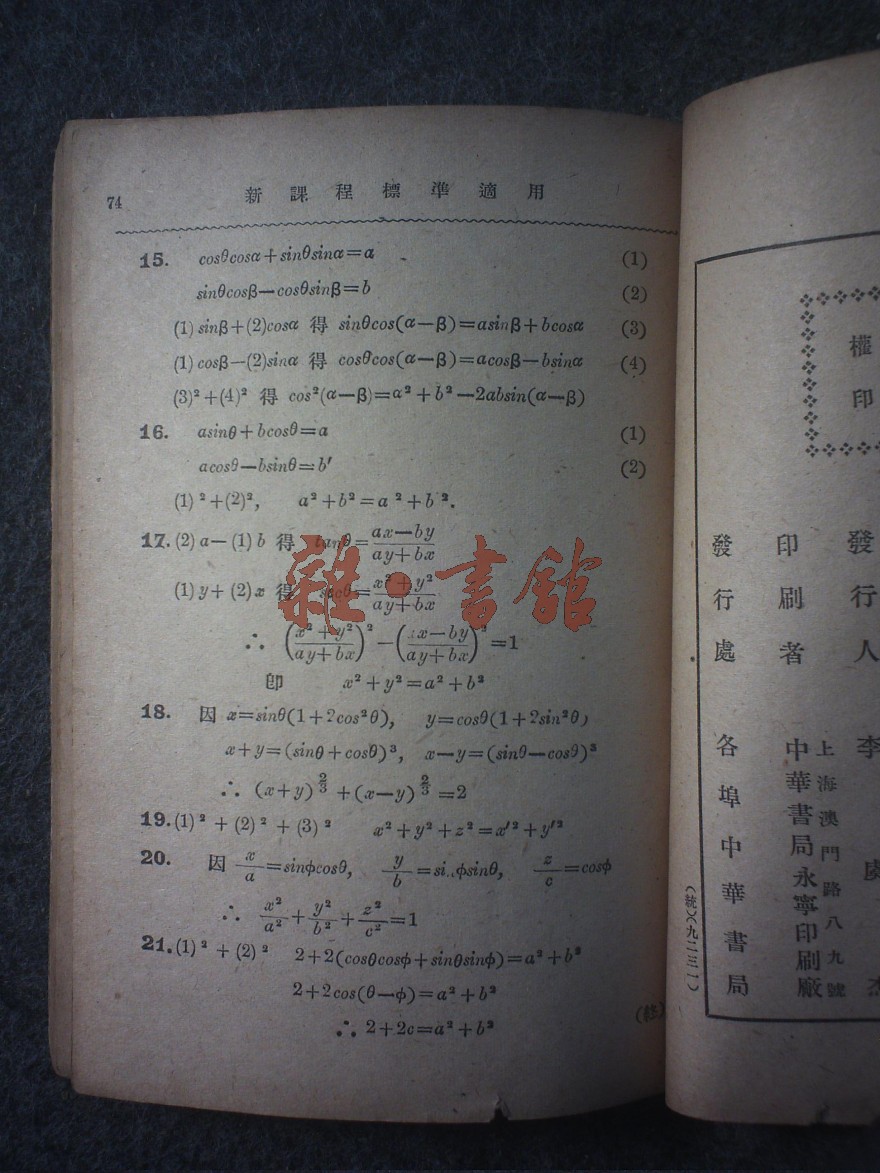 74 新課程標準適用
15. cosθcosα+sinθsinα=a (1)
sinθcosβ−cosθsinβ=b (2)
(1) sinβ+(2)cosα 得 sinθcos(α−β)=asinβ+bcosα (3)
(1) cosβ−(2)sinα 得 cosθcos(α−β)=acosβ−bsinα (4)
(3)²+(4)² 得 cos²(α−β)=a²+b²−2absin(α−β)
16. asinθ+bcosθ=a (1)
acosθ−bsinθ=b′ (2)
(1)²+(2)², a²+b²=a²+b².
17. (2)a−(1)b 得 tanθ=(ax−by)/(ay+bx)
(1)y+(2)x 得 secθ=(x²+y²)/(ay+bx)
∴ ((x²+y²)/(ay+bx))²−((ax−by)/(ay+bx))²=1
卽 x²+y²=a²+b²
18. 因 x=sinθ(1+2cos²θ), y=cosθ(1+2sin²θ)
x+y=(sinθ+cosθ)³, x−y=(sinθ−cosθ)³
∴ (x+y)^(2/3)+(x−y)^(2/3)=2
19. (1)²+(2)²+(3)² x²+y²+z²=x′²+y′²
20. 因 x/a=sinφcosθ, y/b=si..φsinθ, z/c=cosφ
∴ x²/a²+y²/b²+z²/c²=1
21. (1)²+(2)² 2+2(cosθcosφ+sinθsinφ)=a²+b²
2+2cos(θ−φ)=a²+b²
∴ 2+2c=a²+b²
(終)
雜·書館
權
印
發行人 李虞杰
印刷者 上海澳門路八九號
中華書局永寧印刷廠
發行處 各埠中華書局
(統)(九二三一)